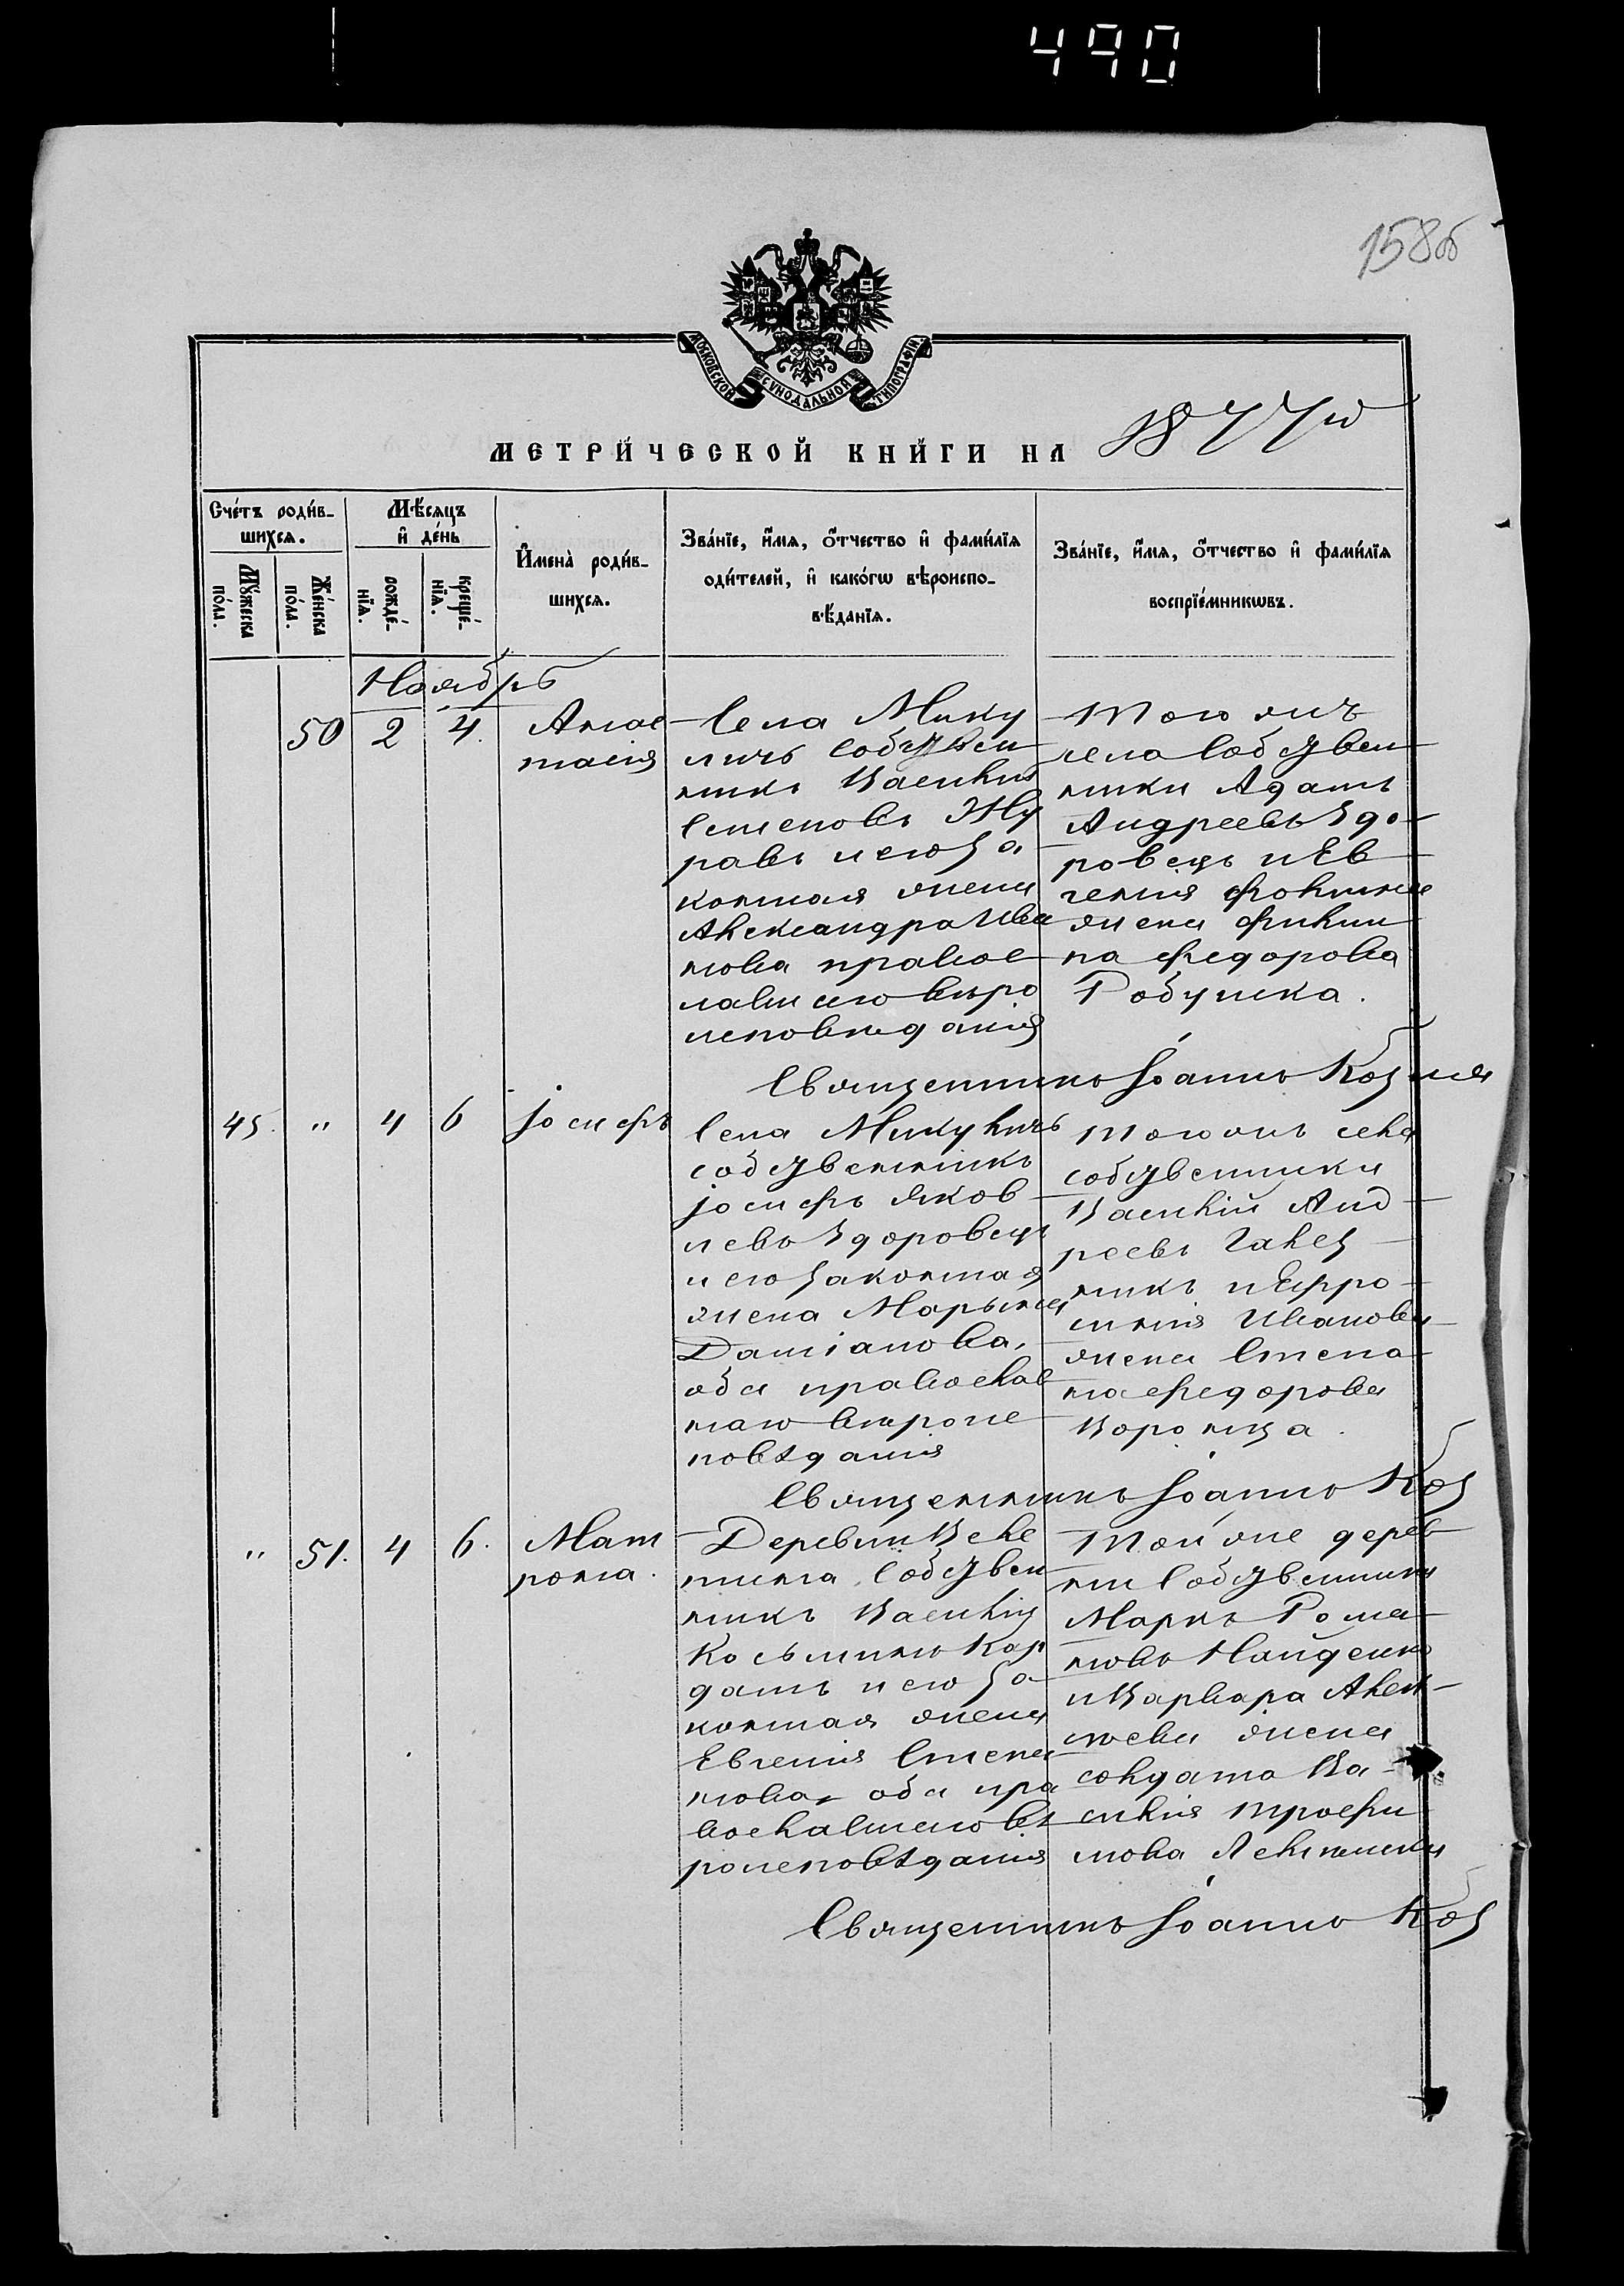 490
158об
МОСКОВСКОЙ СѴНОДАЛЬНОЙ ТИПОГРАФІИ
МЕТРИ́ЧЕСКОЙ КНИ́ГИ НА 1877й
Сче́тъ роди́в-
шихся.
Мѣ́сяцъ
и҆ де́нь
Мꙋ́жеска
по́ла.
Же́нска
по́ла.
рожде́-
нїѧ.
креще́-
нїѧ.
И҆мена̀ роди́в-
шихсѧ.
Зва́нїе, и҆́мѧ, ѻ҆́тчество и҆ фами́лїѧ
оди́телей, и҆ како́гѡ вѣроиспо-
вѣ́данїѧ.
Зва́нїе, и҆́мѧ, ѻ҆́тчество и҆ фами́лїѧ
воспрїе́мникѡвъ.
Ноябрь
50 2 4.
Анас
тасія
Села Мику
личъ собствен
никъ Василій
Семеновъ Жу
равь и его за
конная жена
Александра Ива
нова правос
лавнаго вѣро
исповѣданія
Того жъ
села собствен
ники Адамъ
Андреевъ Здо-
ровецъ и Ев
генія Фокина
жена Филип
па Федорова
Рабушка.
Священникъ Іоаннъ
45. " 4 6
Іосифъ
Села Микуличъ
собственникъ
Іосифъ Яков
левъ Здоровецъ
и его законная
жена Марьяна
Даміанова,
оба православ
наго вѣроис
повѣданія
Того жъ села
собственники
Василій Анд
реевъ Галез
никъ и Ефро
синія Иванова
жена Степа
на Федорова
Воронца.
Священникъ Іоаннъ Коз
" 51. 4 6.
Мат
рона.
Деревни Веле
тина собствен
никъ Василій
Косьминъ Кор
данъ и его за
конная жена
Евгенія Степа
нова оба пра
вославнаго вѣ
роисповѣданія
Той же дерев
ни собственники
Маркъ Рома
новъ Найденко
и Варвара Алек
сѣева жена
солдата Ва-
силія Трофи
мова
Священникъ Іоаннъ Коз